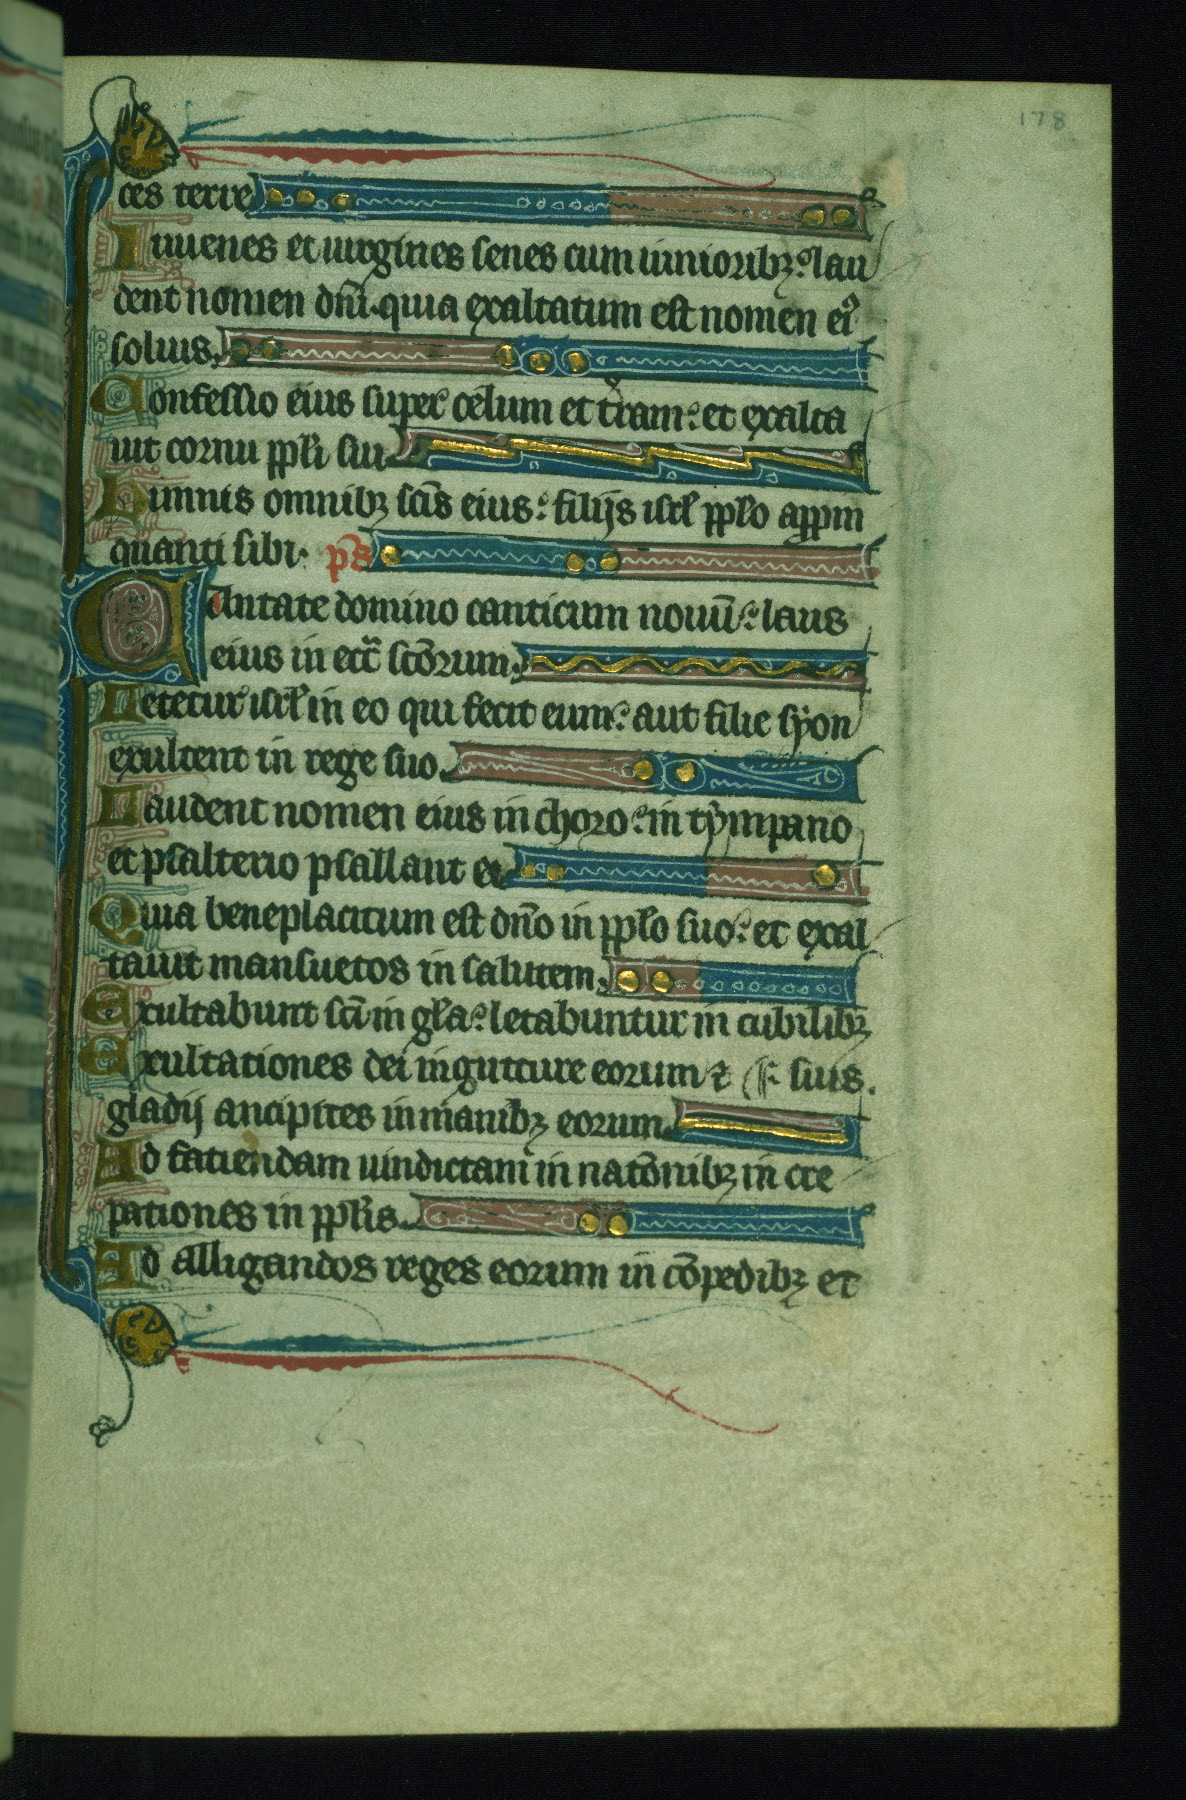 178
ces terre
Iuuenes et uirgines senes cum iuniorib; lau
dent nomen dñi. quia exaltatum est nomen ei᾿
solius.
Confessio eius super celum et t̾ram: et exalta
uit cornu pp̄li sui.
Himnis omnib; sc̄is eius: filijs isrl̄ pp̄lo appin
quanti sibi. ps̄
Cantate domino canticum nouū: laus
eius in ecc̄ sc̄orum.
Letetur isrl̄ in eo qui fecit eum: aut filie syon
exultent in rege suo.
Laudent nomen eius in choro: in tympano
et psalterio psallant ei.
Quia beneplacitum est dn̄o in pp̄lo suo: et exal
tauit mansuetos in salutem.
Exultabunt sc̄i in gl̄a: letabuntur in cubilib;
Exultationes dei in gutture eorum ⁊ suis.
gladij ancipites in manib; eorum.
Ad fatiendam uindictam in natōnib; in cre
pationes in pp̄lis.
Ad alligandos reges eorum in cōpedib; et